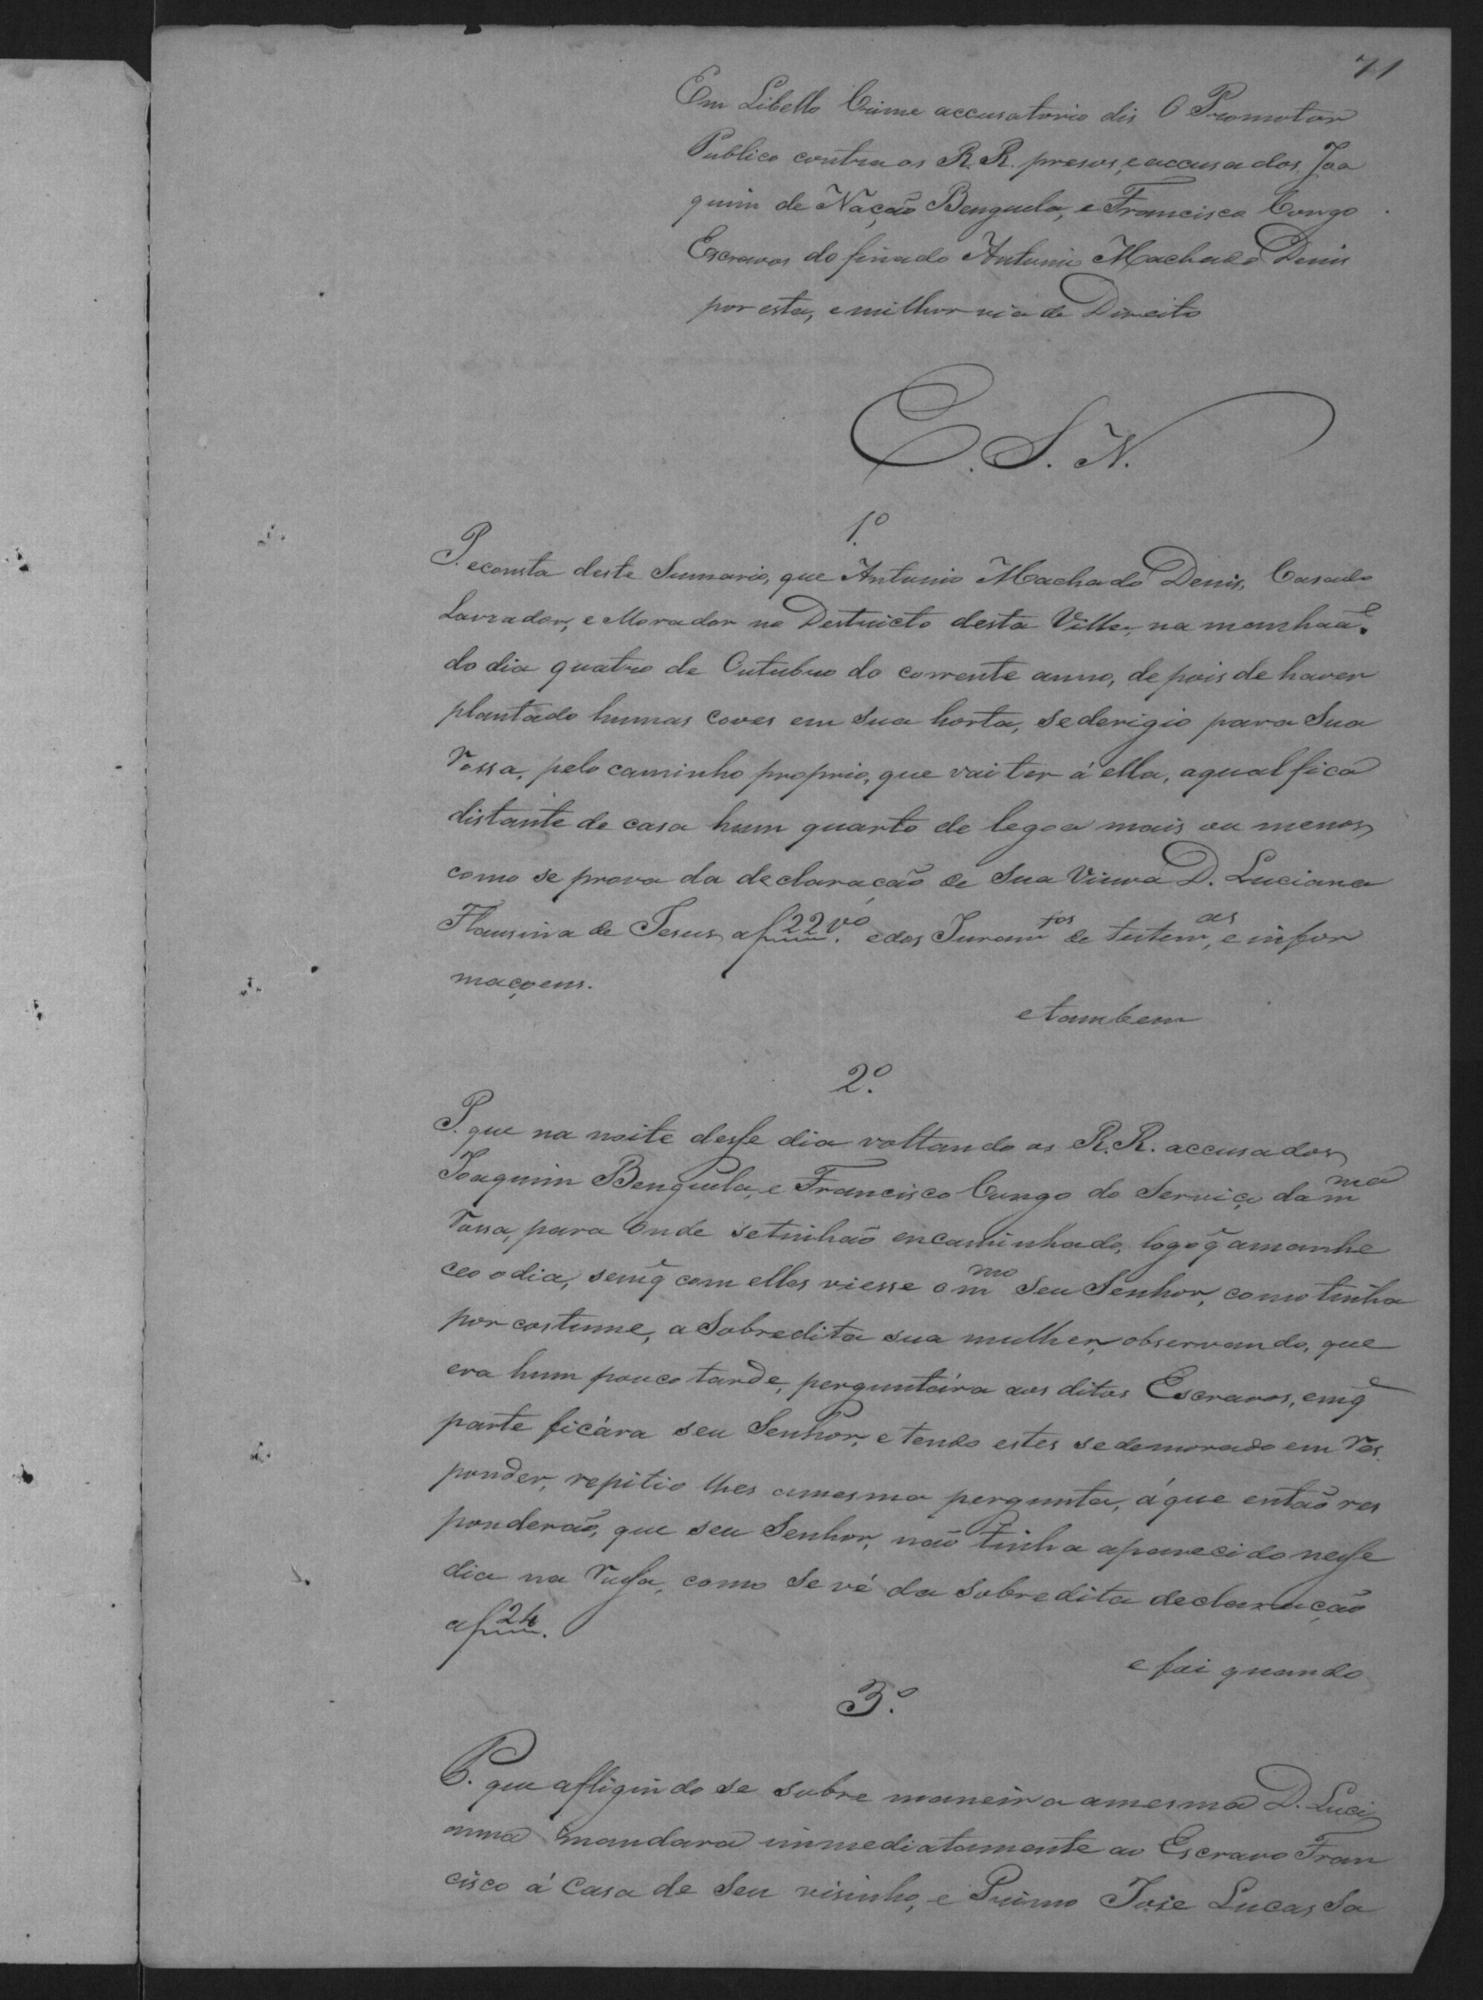 71
Em Libello Crime accusatorio dis O Promotor
Publico contra os R.R. presos, e accusados, Joa
quim de Nação Benguela, e Francisco Congo
Escravos do finado Antonio Machado Denis
por esta, e milhor via de Direito
E. S. N.
1.º
P. e consta deste Sumario, que Antonio Machado Denis, Casado
Lavrador, e Morador no Destricto desta Villa, na manhaã
do dia quatro de Outubro do corrente anno, de pois de haver
plantado humas coves em sua horta, se derigio para Sua
Rossa, pelo caminho proprio, que vai ter á ella, a qual fica
distante de casa hum quarto de legoa mais ou menos,
como se prova da declaração de Sua Viuva D. Luciana
Flausina de Jesus, a f 22 vº. e dos Juramtos de testemas, e infor
maçoens.
e tambem
2.º
P. que na noite desse dia voltando os R.R. accusados
Joaquim Benguela, e Francisco Congo do Serviço da mma
Rossa, para onde se tinhão encaminhado, logo q̃ amanhe
ceo o dia, sem q̃ com elles viesse o mmo Seu Senhor, como tinha
por costume, a Sobredita sua mulher, observando, que
era hum pouco tarde, perguntára aos ditos Escravos, em q̃
parte ficára seu Senhor, e tendo estes se demorado em res
ponder, repitio lhes a mesma pergunta, á que então res
ponderão, que seu Senhor, não tinha aparecido nesse
dia na Russa, como se vé da sobredita declaração
a f 24.
e foi quando
3.º
P. que afligindo se sobre maneira a mesma D. Luci
anna mandara immediatamente ao Escravo Fran
cisco á Casa de Seu visinho, e Primo José Lucas, Sa